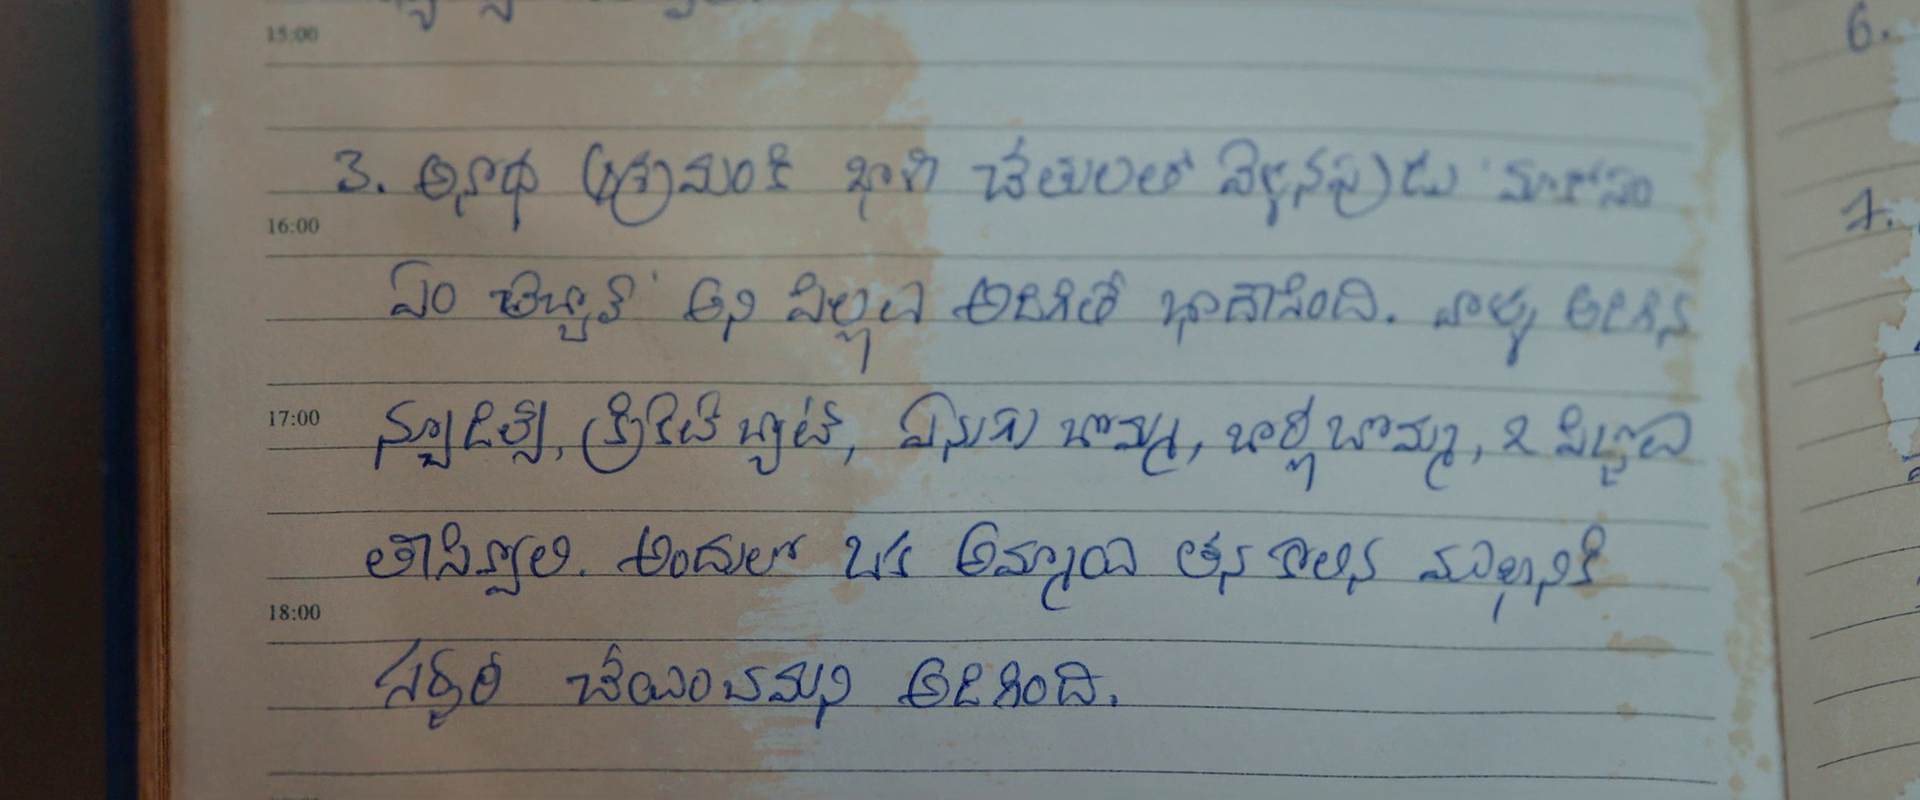 15:00
6.
3. అనాథ ఆశ్రమంకి ఖాళీ చేతులతో వెళ్ళినప్పుడు 'మాకోసం
16:00
7.
ఏం తెచ్చారే' అని పిల్లలు అడిగితే బాధేసింది. వాళ్ళు అడిగిన
17:00
న్యూడిల్స్, క్రికెట్ బ్యాట్, ఏనుగు బొమ్మ, బార్బీ బొమ్మ, ఓ పిజ్జాలు
తీసివ్వాలి. అందులో ఒక అమ్మాయి తన కాలిన ముఖానికి
18:00
సర్జరీ చేయించమని అడిగింది.